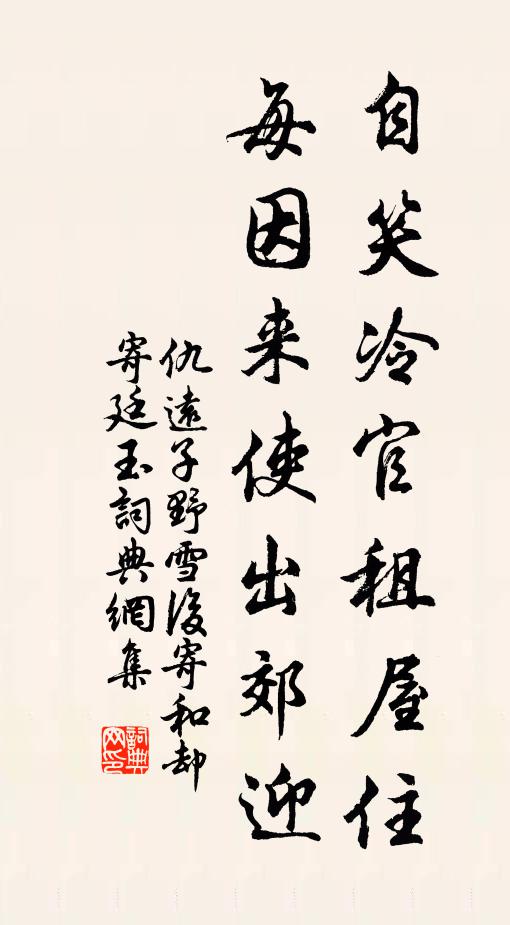 自笑冷官租屋住
每因来使出郊迎
仇遠子野雪後寄和却
寄廷玉詞典網集
詞典网印